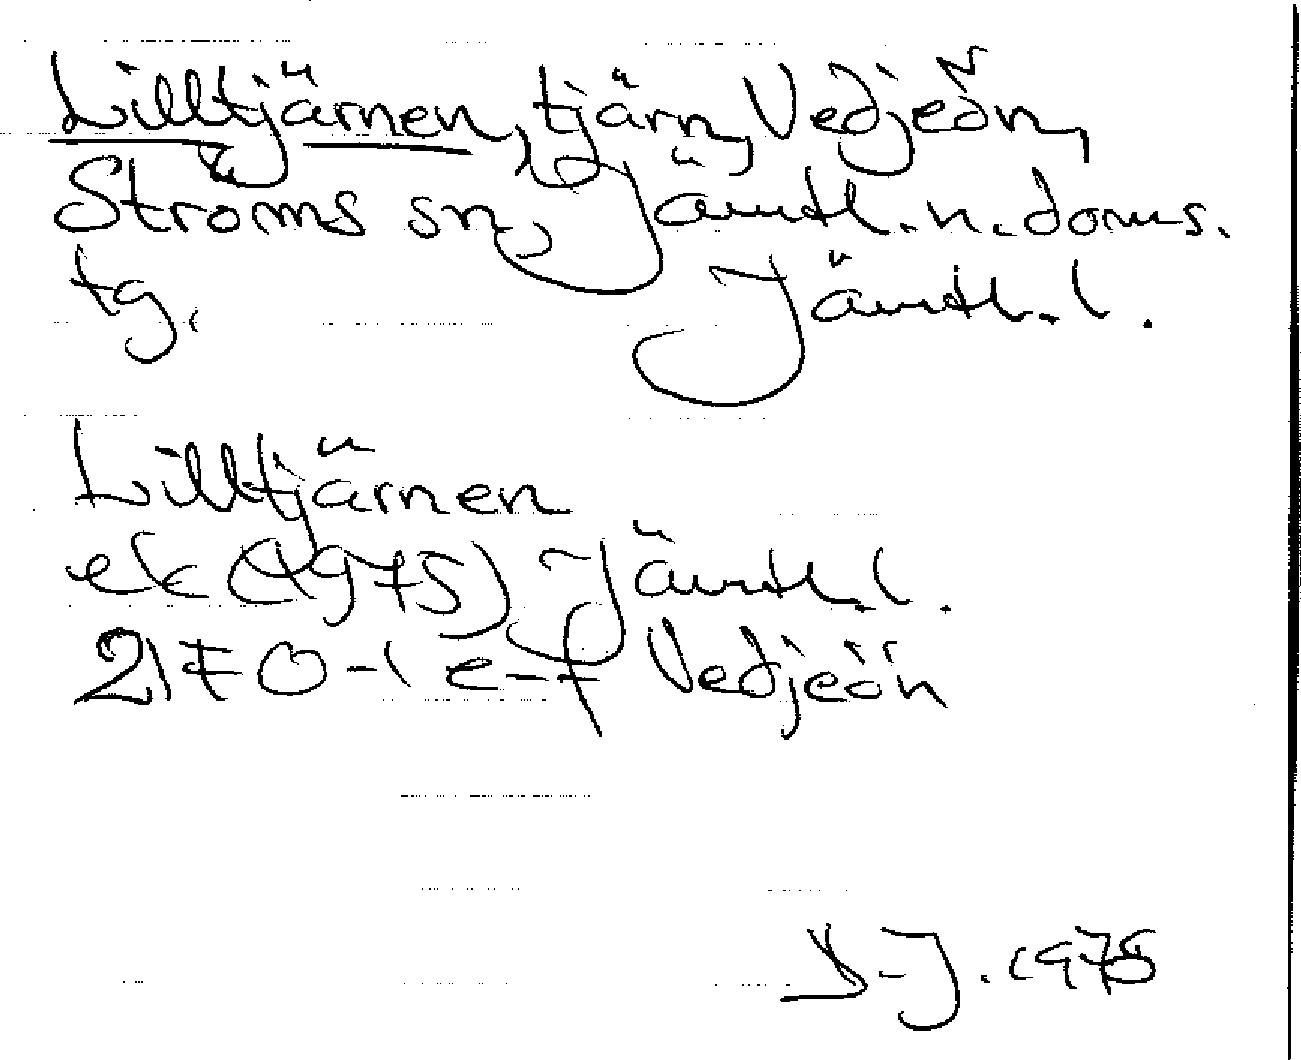 Lilltjärnen, tjärn, Vedjeön,
Ströms sn, Jämtl. n. doms.
tg. Jämtl. l.
Lilltjärnen
ek (1975) Jämtl. l.
21F 0-1 e-f Vedjeön
D-J. 1975